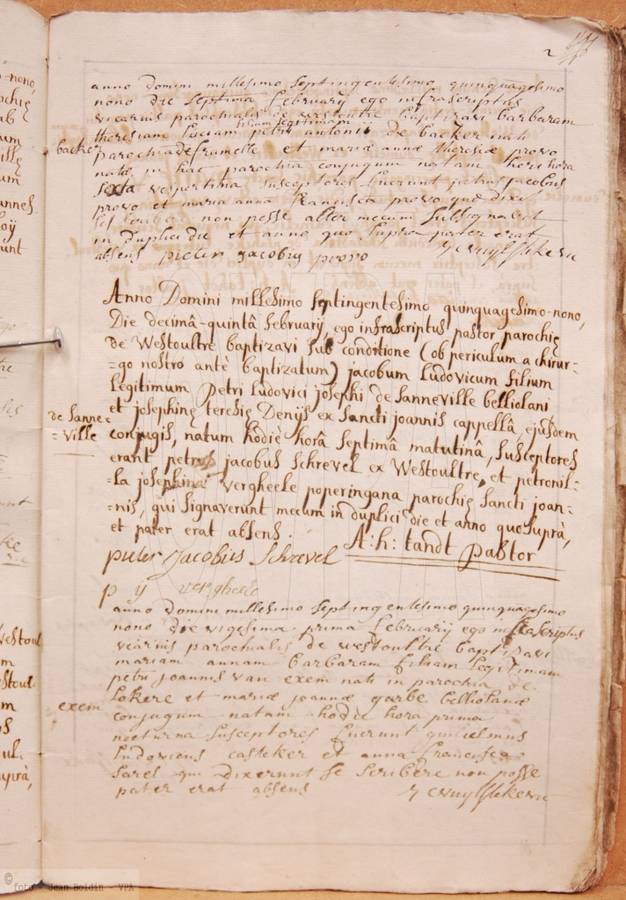 2
anno domini millesimo septingentesimo quinquagesimo
nono die septima february ego infrascriptus
vicarius parochialis de westoutre baptizavi barbaram
filiam legitimam
theresiam luciam petri antonii de backer nati
backer
parochia de et mariæ annæ theresiæ provo
natæ in hac parochia conjugum natam heri hora
sexta vespertina susceptores fuerunt petrus jacobus
provo et maria anna francisca provo quæ dixit
se non posse alter mecum subsignavit
in duplici die et anno quo supra pater erat
absens pieter jacobus provo
Anno Domini millesimo septingentesimo quinquagesimo-nono,
Die decimâ-quintâ february, ego infrascriptus pastor parochiæ
de Westoultre baptizavi sub conditione (ob periculum a chirur-
-go nostro antè baptizatum) jacobum Ludovicum filium
legitimum petri Ludovici josephi de Sanneville belliolani
et josephinæ teresiæ Denijs ex Sancti joannis cappellâ ejusdem
de Sanne-
-ville
conjugis, natum hodiè horâ septimâ matutinâ, susceptores
erant petrus jacobus schrevel ex Westoultre, et petronil-
-la josephina vergheele poperingana parochiæ sancti joan-
-nis, qui signaverunt mecum in duplici die et anno quo suprà,
et pater erat absens.
A: h: tandt pastor
pieter jacobus schrevel
p ij vergheele
anno domini millesimo septingentesimo quinquagesimo
nono die vigesima prima february ego infrascriptus
vicarius parochialis de westoultre baptizavi
mariam annam barbaram filiam legitimam
petri joannis van exem nati in parochia de
exem
lokere et mariæ joannæ garbe belliolanæ
conjugum natam hodie hora prima
nocturna susceptores fuerunt guilielmus
ludovicus casteker et anna francisca
sares qui dixerunt se scribere non posse
pater erat absens
© foto: Jean Boidin - VPA